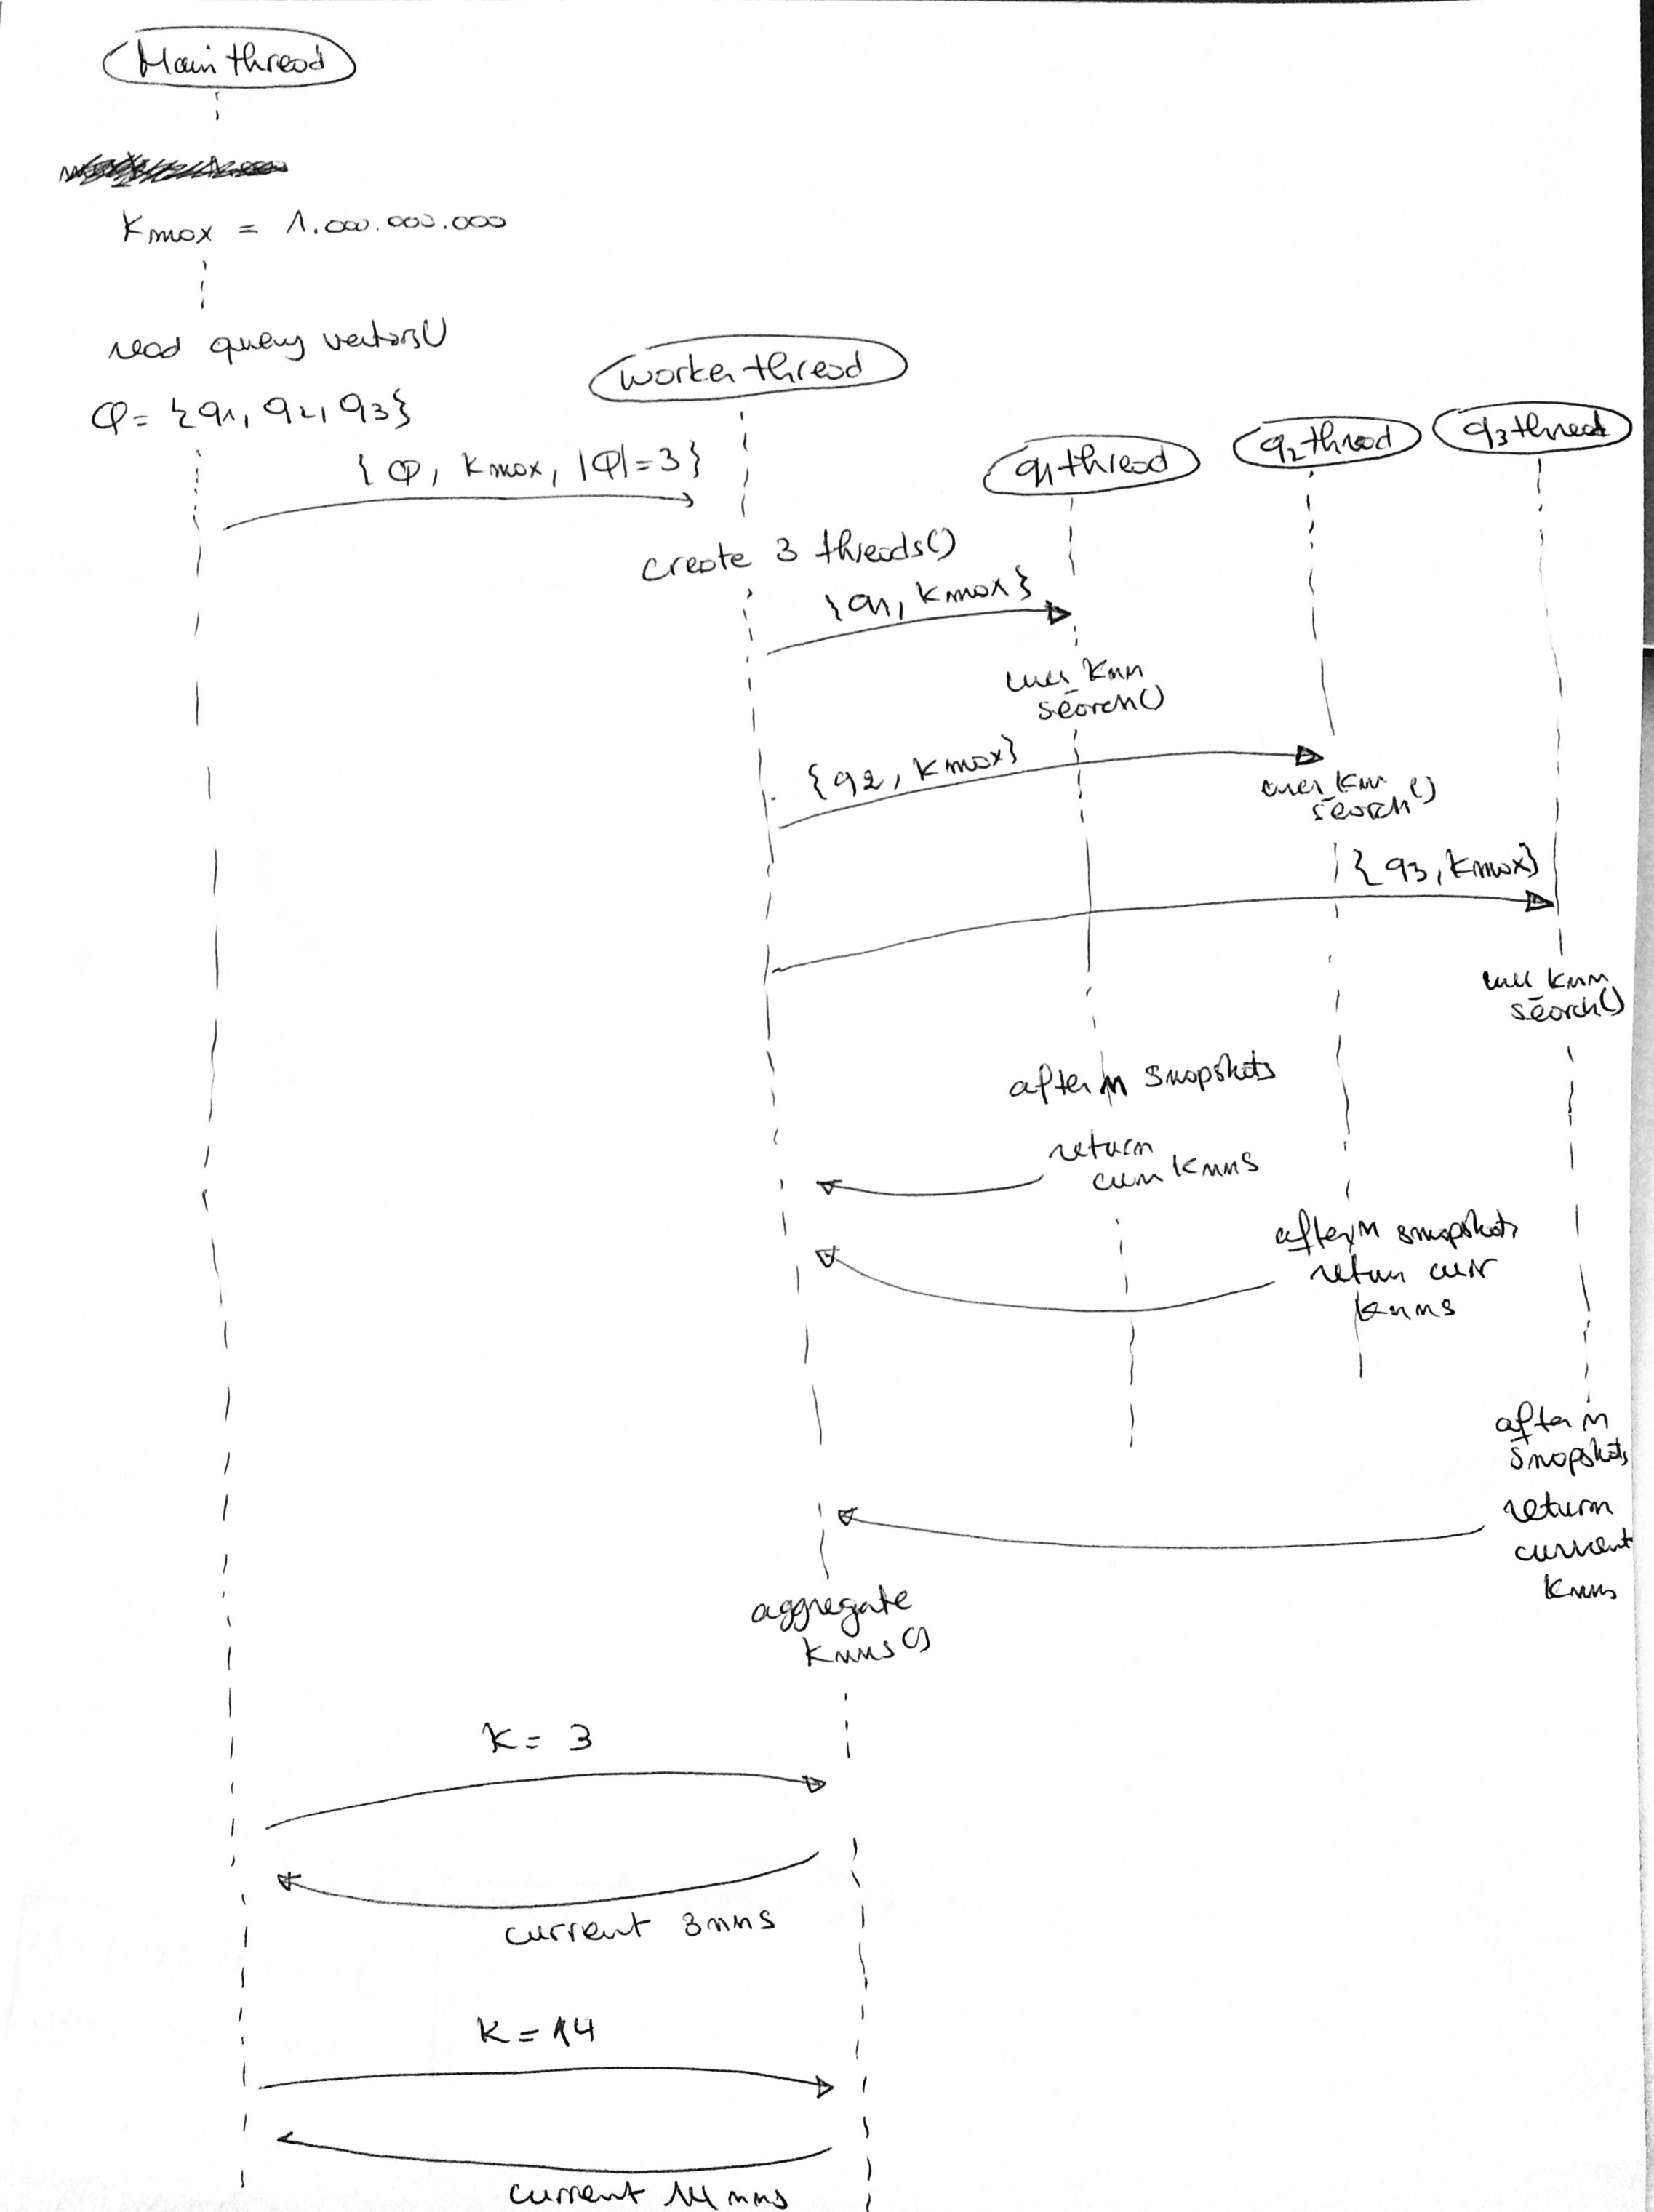 Main thread
Kmax = 1.000.000.000
read query vectors()
Q= {q1, q2, q3}
worker thread
q1 thread
q2 thread
q3 thread
{ Q, Kmax, |Q|=3}
create 3 threads()
{q1, Kmax}
knn
search()
{q2, Kmax}
search()
{q3, Kmax}
knn
search()
after n snapshots
return
curr Knns
after n snapshots
return curr
knns
after n
snapshots
return
current
knns
aggregate
knns()
K= 3
current 3nns
K=14
current 14nns